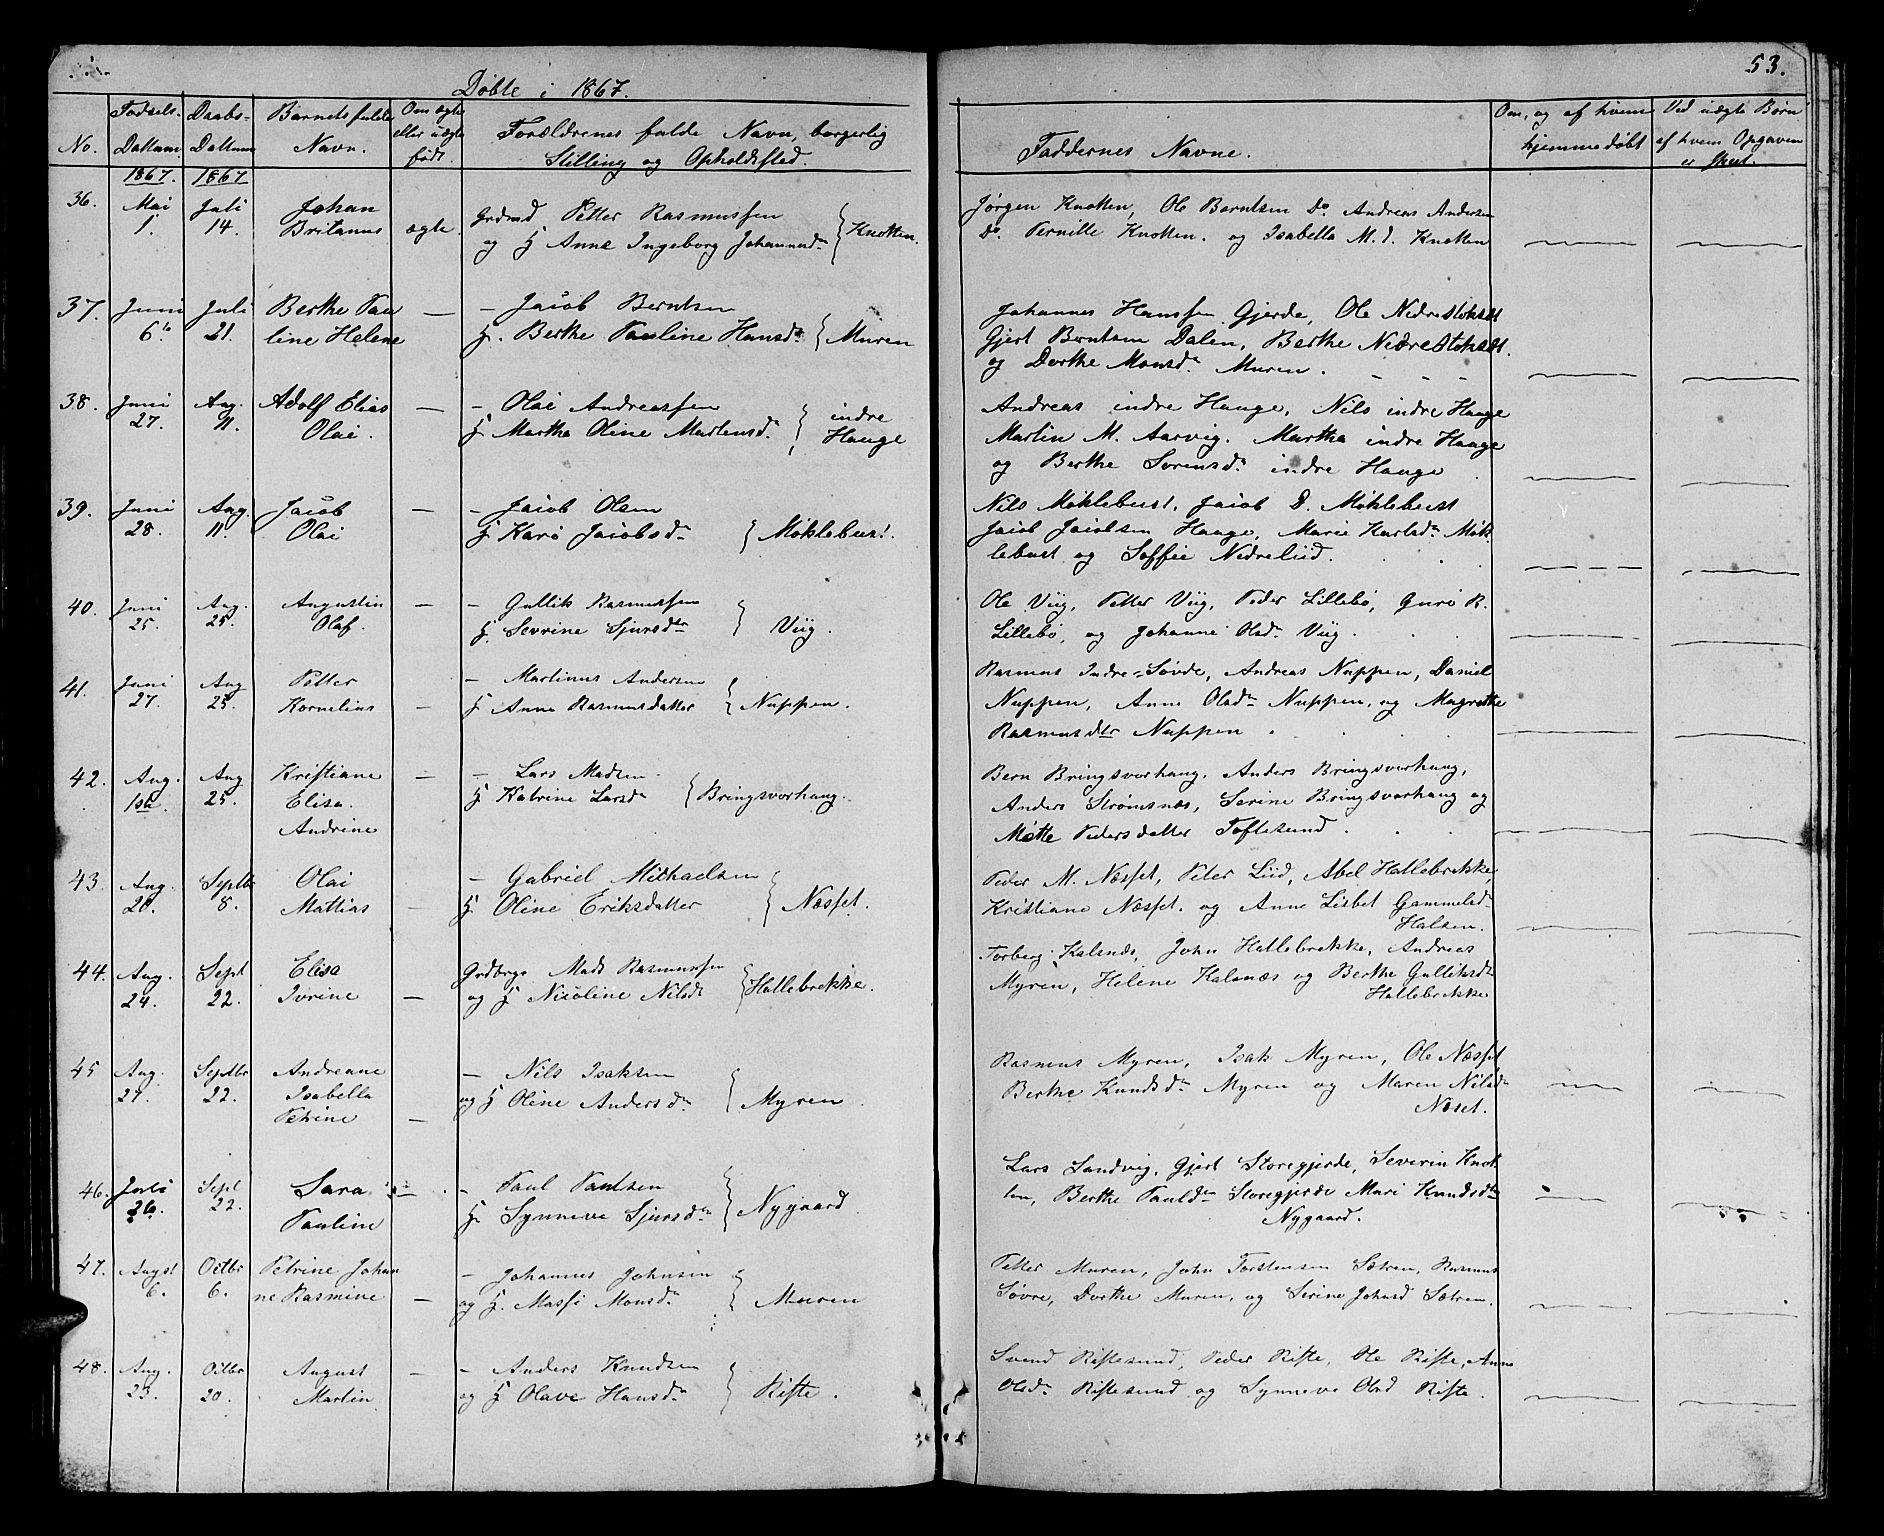 Døbte i 1867.
53.
No.
Fødsels-
Dattum
Daabs-
Dattum
Barnets fulde
Navn.
Om ægte
eller uægte
født.
Forældrenes fulde Navn, borgerlig
Stilling og Opholdssted.
Faddernes Navne.
Om, og af hvem
hjemmedøbt
Ved uægte Børn
af hvem Opgaven
er skeet.
1867. 1867
36. Mai Juli Johan Grdmd Petter Rasmussen
1. 14. Britanus ægte. og H Anne Ingeborg Johannsdr } Knotten.
Jørgen Knotten, Ole Berntsen Do Andreas Andersen
Do. Pernille Knotten. og Isabella M. d. Knotten
37. Juni Juli Berthe Pau — - Jacob Berntsen
6te 21. line Helene H. Berthe Pauline Hansdr } Muren
Johannes Hanssen Gjerde, Ole Nedrestokset
Gjert Berntsen Dalen, Berthe Nedrestokset.
og Dorthe Monsdr Muren.
38. Juni Aug. Adolf Elias — - Olai Andreassen indre
27. 11. Olai. H. Martha Oline Martensdr } Hauge
Andreas indre Hauge, Nils indre Hauge
Martin M. Aarvig. Martha indre Hauge
og Berthe Sørensdr indre Hauge
39. Juni Aug. Jacob — - Jacob Olsen
28. 11. Olai H Kari Jacobsdr } Møklebust.
Nils Møklebust, Jacob D. Møklebust
Jacob Jacobsen Hauge, Marie Karlsdr Møk
lebust og Soffie Nedreliid.
40. Juni Aug. Augustin — - Gullik Rasmussen
25. 25. Olaf. H. Sevrine Sjursdtr } Viig.
Ole Viig, Petter Viig, Peder Lillebø, Guri R.
Lillebø, og Johanne Olsdr Viig.
41. Juni Aug Petter - Martinus Andersen
27. 25. Kornelius — H Anne Rasmusdatter } Nuppen.
Rasmus Indre-Søvde, Andreas Nuppen, Daniel
Nuppen, Anne Olsdr Nuppen, og Magrethe
Rasmusdtr Nuppen
42. Aug. Aug Kristiane — - Lars Madsen.
1ste 25. Elisa. H Katrine Larsdr } Bringsvorhaug.
Andrine
Bern Bringsvorhaug, Anders Bringsvorhaug,
Anders Strømsnæs, Serine Bringsvorhaug og
Mette Pedersdatter Toftesund.
43. Aug. Septbr Olai - Gabriel Michaelsen
20. 8. Mattias — H. Oline Eriksdatter } Næsset.
Peder M. Næsset, Peter Liid, Abel Hallebrekke
Kristiane Næsset. og Anne Lisbet Gammelsdr
Halsen.
44. Aug. Sept Elisa Grdbrgr Mads Rasmussen
24. 22. Ivrine — og H Nicoline Nilsdr } Hallebrekke.
Torberg Kalsnæs, John Hallebrekke, Andreas
Myren, Helene Kalsnæs og Berthe Gulliksdr
Hallebrekke
45 Aug. Septbr Andreane - Nils Isaksen
27. 22. Isabella og H Oline Andersdr } Myren.
Petrine —
Rasmus Myren, Isak Myren, Ole Næsset
Berthe Knudsdr Myren og Maren Nilsdr
Næset.
46. Juli Sept Sara — - Paul Paulsen
26. 22. Pauline H. Synneve Sjursdr } Nygaard
Lars Sandvig, Gjert Storegjerde, Severin Knot
ten, Berthe Paulsdr Storegjerde Mari Knudsdtr
Nygaard.
47. Augst Octbr Petrine Johan - Johannes Johnsen
6. 6. ne Rasmine — og H. Massi Monsdr } Muren
Petter Muren, John Torstensen Sætren, Rasmus
Søvre, Dorthe Muren, og Serine Johnsd Sætren.
48. Aug. Octbr August — - Anders Knudsen
23. 20. Martin og H Olave Hansdr } Riste.
Svend Ristesund, Peder Riste, Ole Riste, Anne
Olsdr Ristesund og Synneve Olsd Riste.